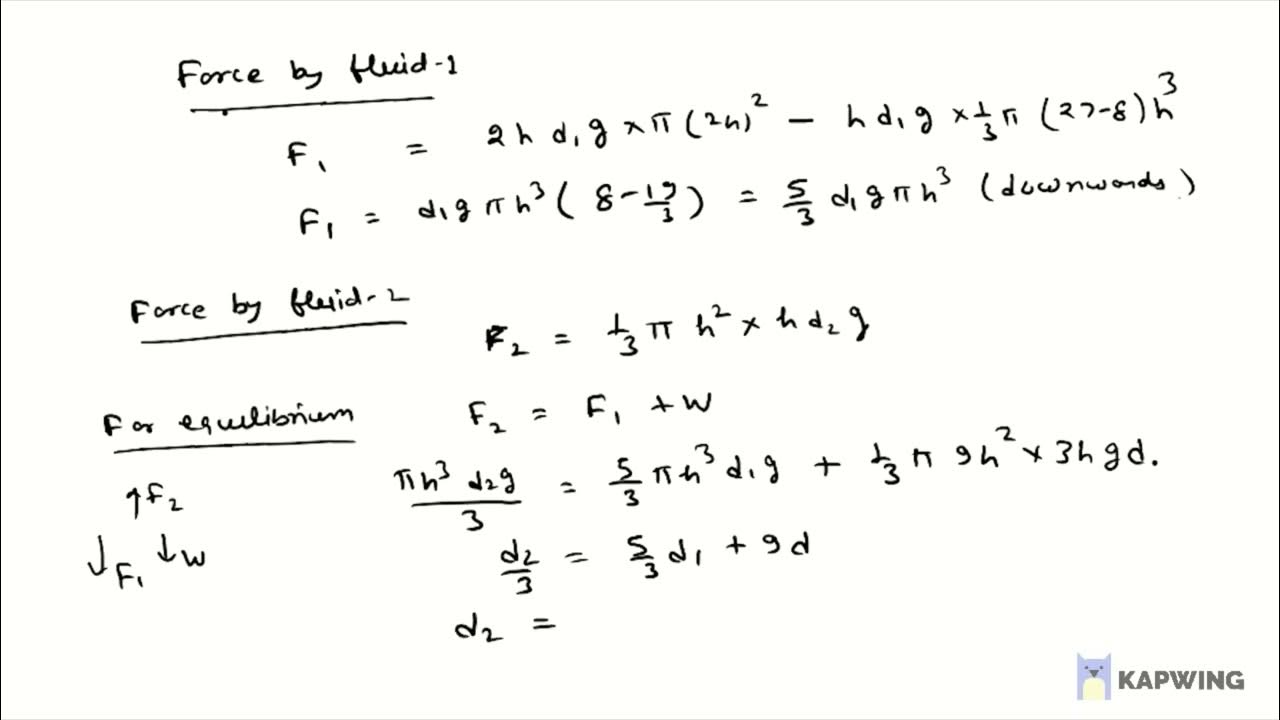 Force by fluid-1
F₁ = 2h d₁g × π(2h)² − h d₁g × 1/3 π (27-8)h³
F₁ = d₁g πh³ ( 8 - 19/3 ) = 5/3 d₁gπh³ (downwards)
Force by fluid-2
F₂ = 1/3 π h² × h d₂ g
For equilibrium
F₂ = F₁ + W
πh³ d₂g / 3 = 5/3 πh³ d₁g + 1/3 π 9h² × 3h gd.
↑F₂
d₂/3 = 5/3 d₁ + 9d
↓F₁ ↓W
d₂ =
KAPWING